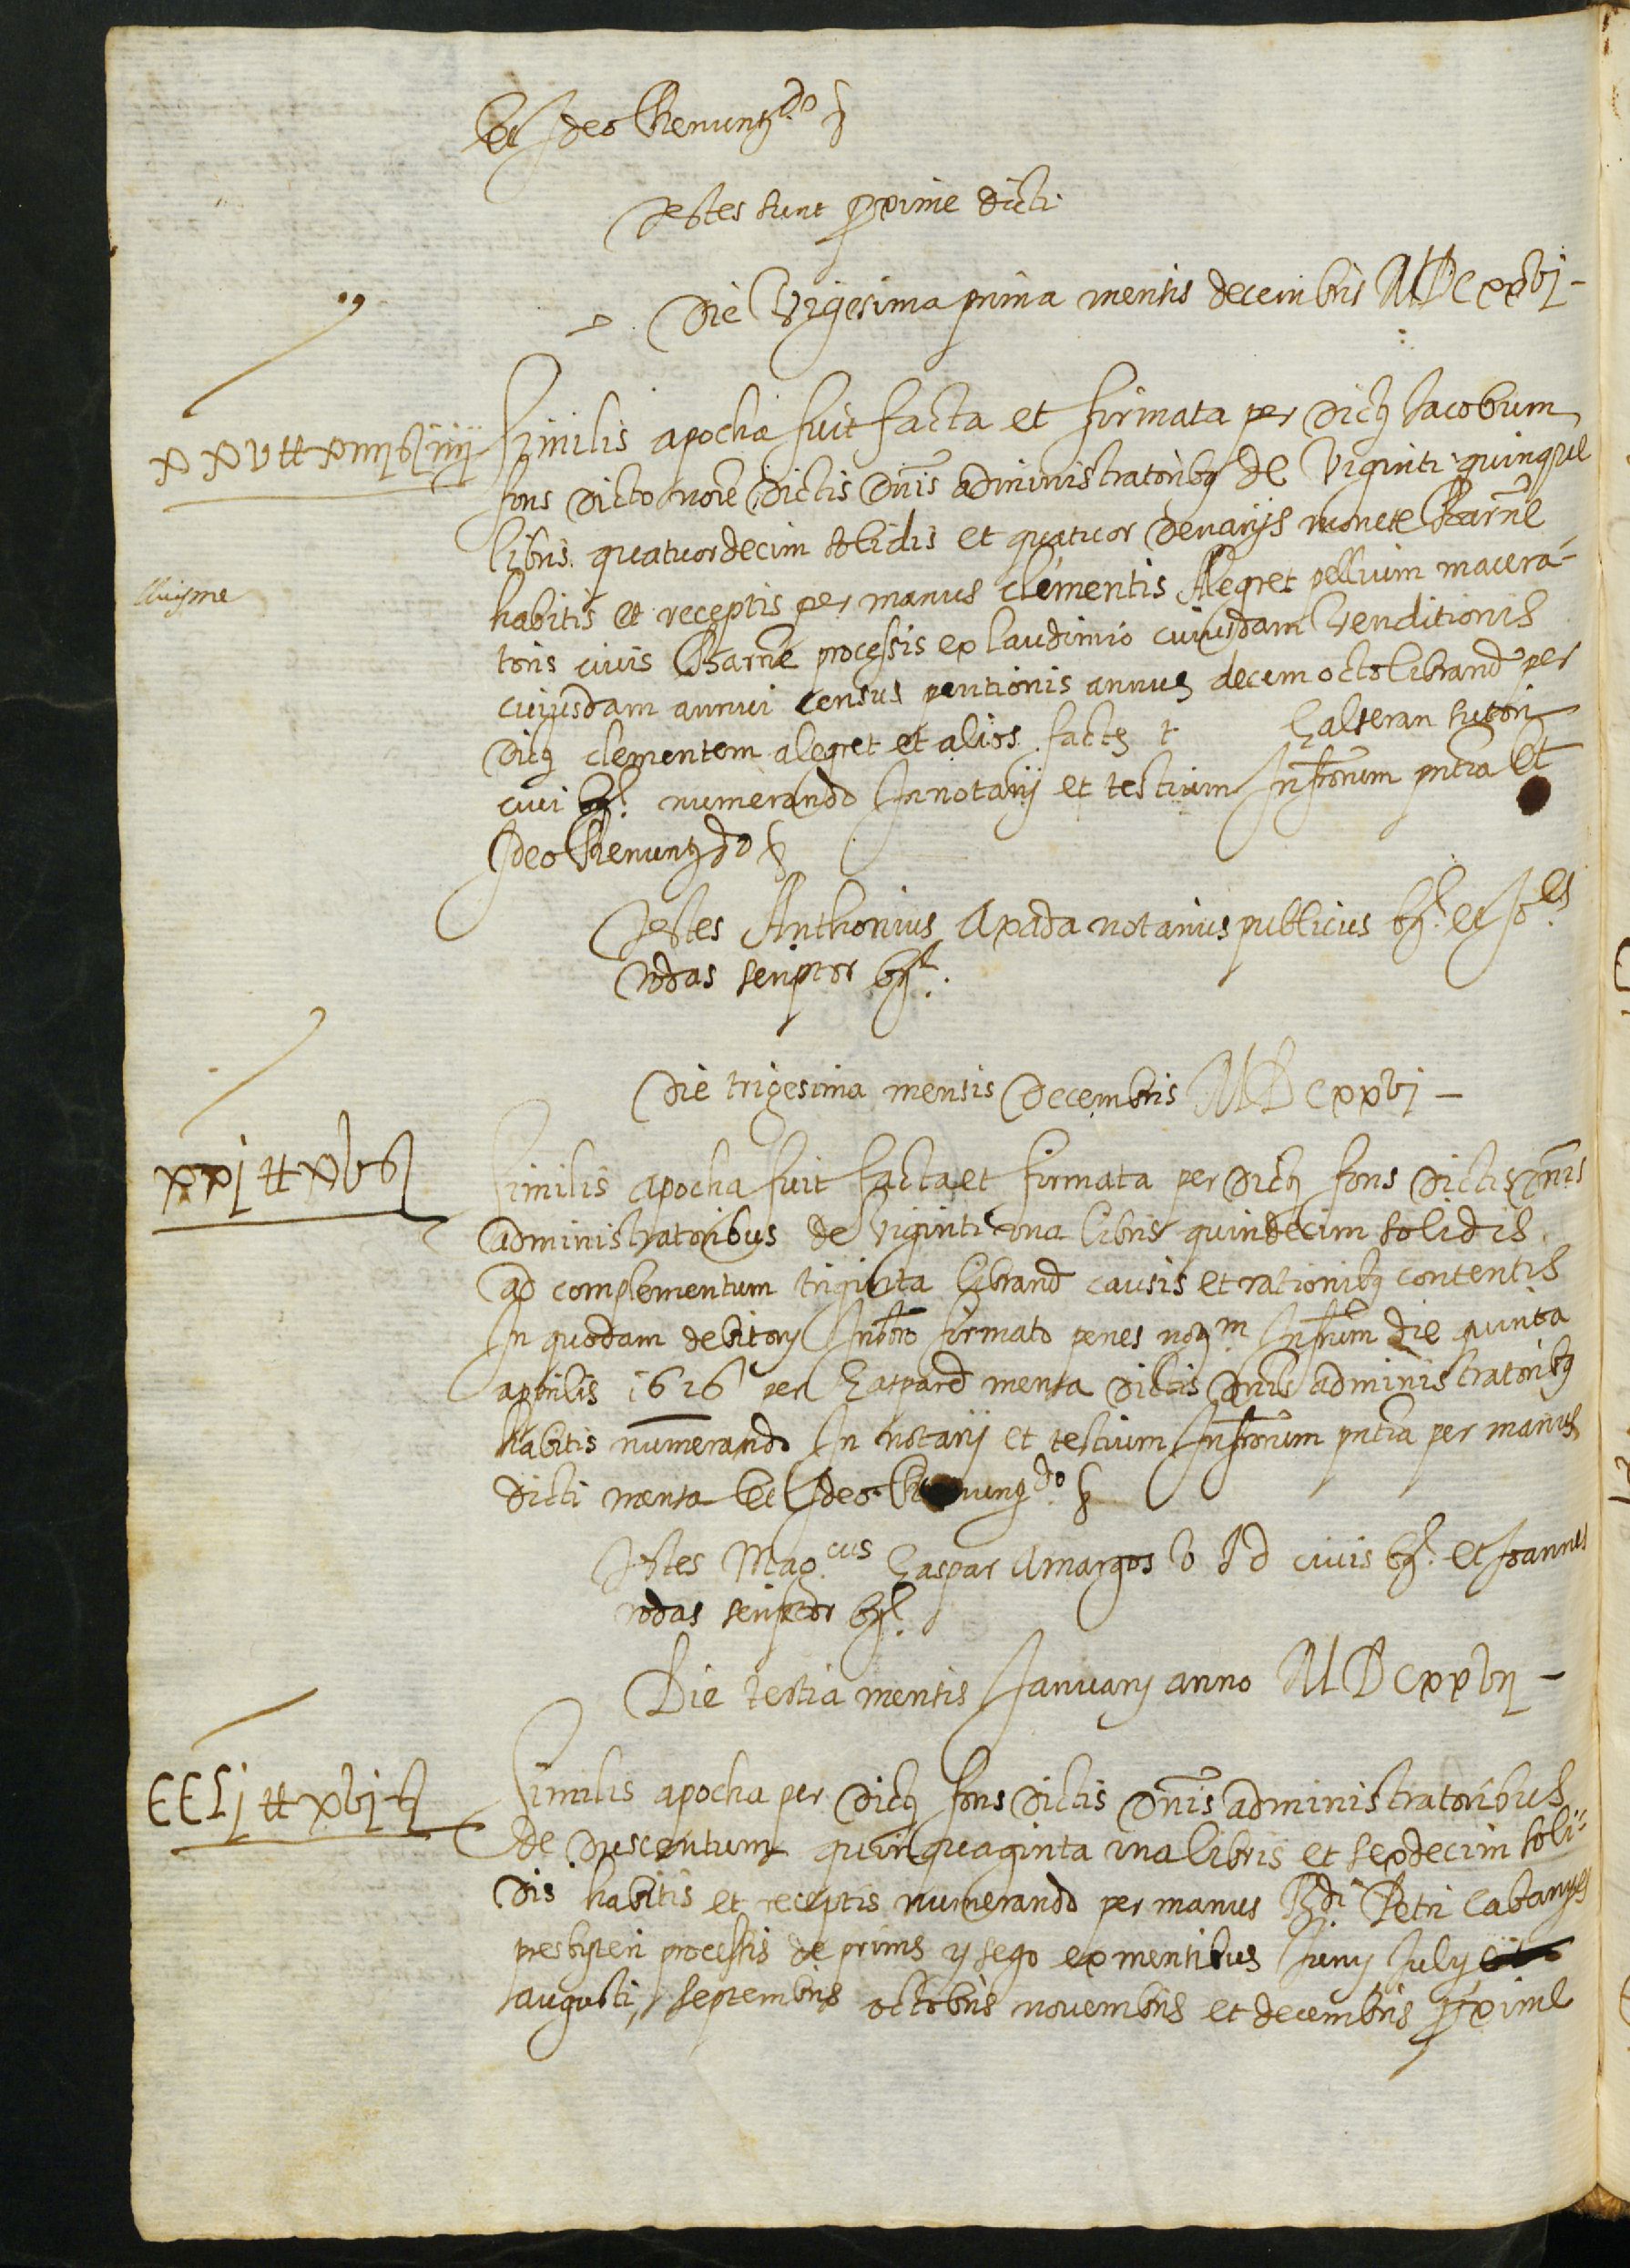 Et Ideo Renung.do &
Testes sunt proxime dicti
Die Vigesima prima mensis decembris MDCxxvj
xxv ll xiiij s iiij Similis apocha fuit facta et firmata per dictũ Jacobum
fons dicto noīe dictis Dnīs administratoribus de Viginti quinque
libris quatuordecim solidis et quatuor denarijs monete Barne
lluisme
habitis et receptis per manus clementis Alegret pellium macera-
toris civis Barne processis ex laudimio cuiusdam Venditionis
cuiusdam annui census pentionis annue decem octo librand per
dictũ clementem alegret et alios factę t Galseran sutori
civi Bar. numerando In notarij et testium Infrorum pntia Et
Ideo Renung.do &
Testes Anthonius Axada notarius publicus bar. et Jo.es
rodas scriptor bar.
Die trigesima mensis Decembris MDCxxvj
xxj ll xv s Similis apocha fuit facta et firmata per dictũ fons dictis Dnīs
administratoribus de Viginti una libris quindecim solidis
ad complementum triginta librand causis et rationibus contentis
In quodam debitorij Instro firmato penes not.m Infrum die quinta
aprilis 1626 per Gaspard mensa dictis Dnīs administratoribus
habitis numerando In notarij et testium Infrorum pntia per manus
dicti mensa Et Ideo Renung.do &
Testes Mag.cus Gaspar Amargos V J D civis bar. et Joannes
rodas scriptor bar.
Die tertia mensis Januarij anno MDCxxvij
CCLj ll xvj s Similis apocha per dictũ fons dictis Dnīs administratoribus
de Duscentum quinquaginta una libris et sexdecim soli-
dis habitis et receptis numerando per manus R.di Petri Cabanyes
presbyteri processis de prims y sego ex mensibus Junij Julij
augusti, septembris octobris novembris et decembris proxime